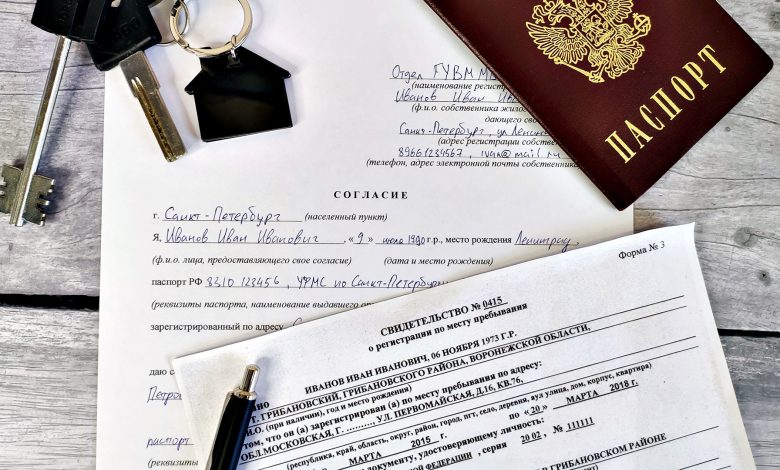 Отдел ГУВМ М
(наименование регистр
Иванов Иван Ив
(ф.и.о. собственника жило
дающего свое
Санкт-Петербург, ул Ленин
(адрес регистрации собстве
89661234567, ivan@mail.ru
(телефон, адрес электронной почты собственника
ПАСПОРТ
СОГЛАСИЕ
г. Санкт-Петербург (населенный пункт)
Я, Иванов Иван Иванович, «9» июля 1990 г.р., место рождения Ленинград,
(ф.и.о. лица, предоставляющего свое согласие) (дата и место рождения)
паспорт РФ 8310 123456, УФМС по Санкт-Петербург
(реквизиты паспорта, наименование выдавшего ор
зарегистрированный по адресу С
даю с
Петро
паспорт
(реквизиты
Форма № 3
СВИДЕТЕЛЬСТВО № 0415
о регистрации по месту пребывания
ИВАНОВ ИВАН ИВАНОВИЧ, 06 НОЯБРЯ 1973 Г.Р.
АНО Т. ГРИБАНОВСКИЙ, ГРИБАНОВСКОГО РАЙОНА, ВОРОНЕЖСКОЙ ОБЛАСТИ,
И.О. (при наличии), год и место рождения)
том, что он (а) зарегистрирован (а) по месту пребывания по адресу:
ОБЛ.МОСКОВСКАЯ, Г. ........, УЛ. ПЕРВОМАЙСКАЯ, Д.16, КВ.76,
(республика, край, область, округ, район, город, пгт, село, деревня, аул улица, дом, корпус, квартира)
МАРТА 2015 г. по «20» МАРТА 2018 г.
документу, удостоверяющему личность:
ФЕДЕРАЦИИ, серия 20 02, № 111111
В ГРИБАНОВСКОМ РАЙОНЕ